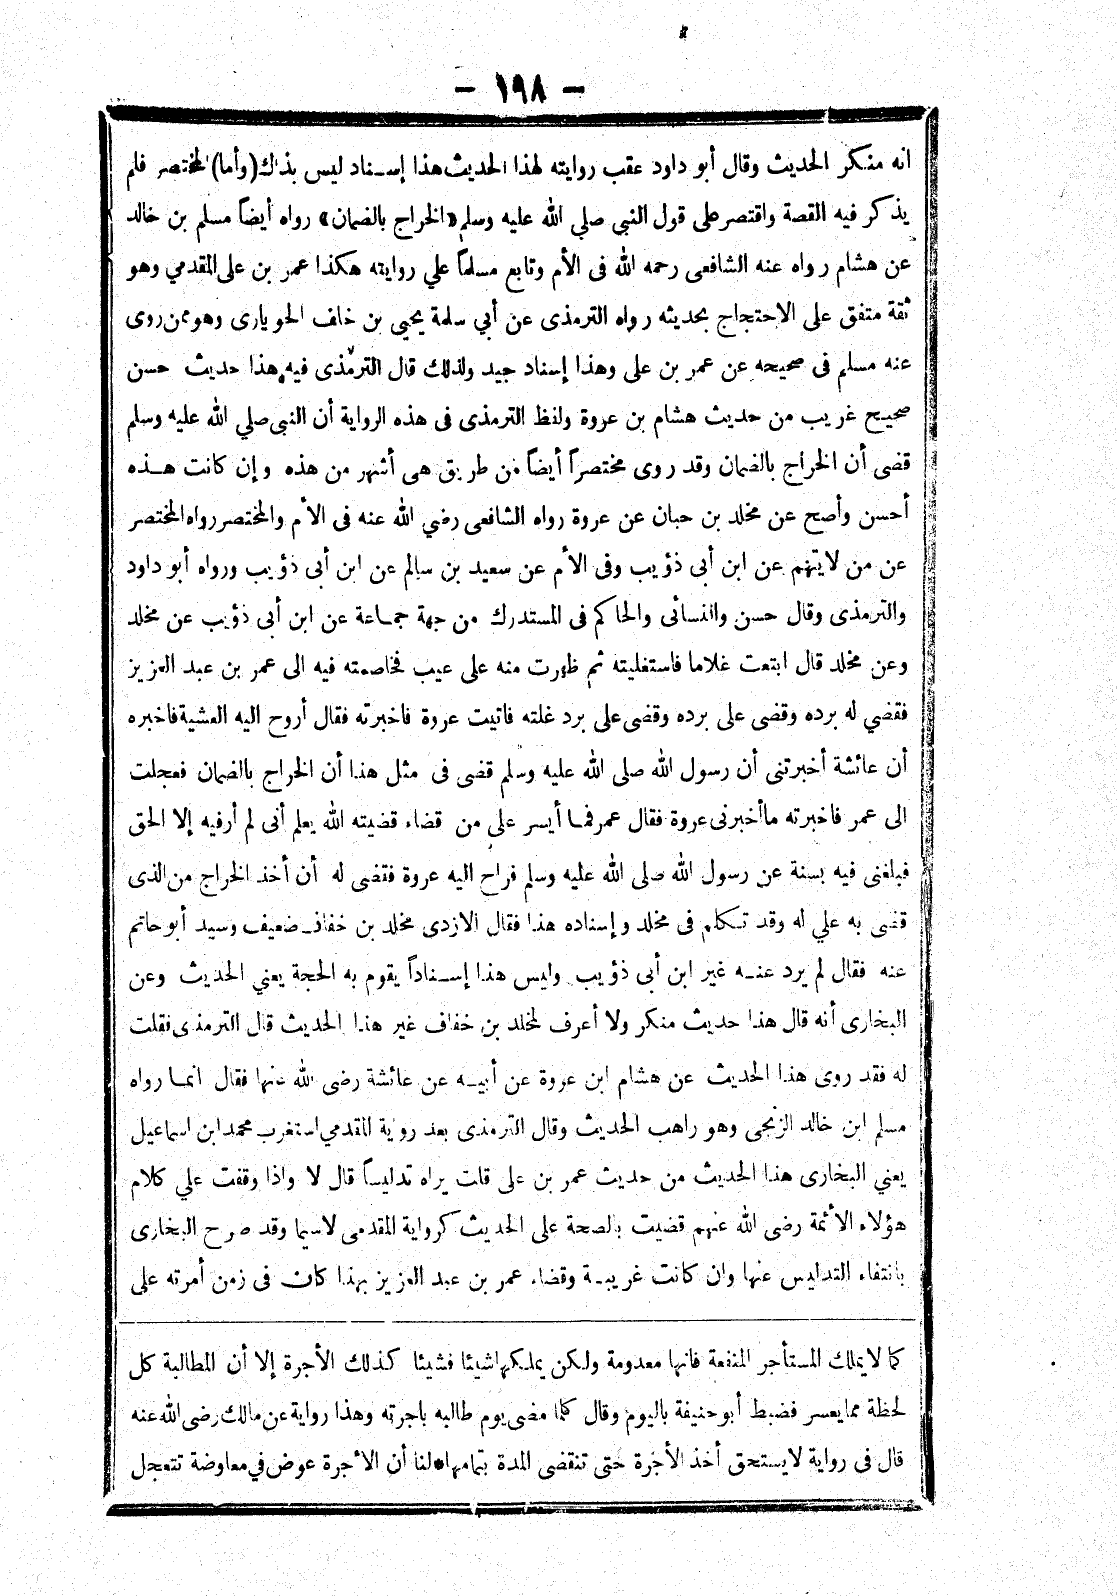 - ١٩٨ -
انه منكر الحديث وقال أبو داود عقب روايته لهذا الحديث هذا إسناد ليس بذاك (وأما) المختصر فلم
يذكر فيه القصة واقتصر على قول النبي صلي الله عليه وسلم «الخراج بالضمان» رواه أيضاً مسلم بن خالد
عن هشام رواه عنه الشافعى رحمه الله فى الأم وتابع مسلماً علي روايته هكذا عمر بن على المقدمي وهو
ثقة متفق على الاحتجاج بحديثه رواه الترمذى عن أبي سلمة يحيى بن خلف الحويارى وهو ممن روى
عنه مسلم فى صحيحه عن عمر بن على وهذا إسناد جيد ولذلك قال الترمذى فيه هذا حديث حسن
صحيح غريب من حديث هشام بن عروة ولفظ الترمذى فى هذه الرواية أن النبى صلي الله عليه وسلم
قضى أن الخراج بالضمان وقد روى مختصراً أيضاً من طريق هى أشهر من هذه وإن كانت هذه
أحسن وأصح عن مخلد بن حبان عن عروة رواه الشافعى رضي الله عنه فى الأم والمختصر رواه المختصر
عن من لا يتهم عن ابن أبى ذؤيب وفى الأم عن سعيد بن سالم عن ابن أبى ذؤيب ورواه أبو داود
والترمذى وقال حسن والنسائى والحاكم فى المستدرك من جهة جماعة عن ابن أبى ذؤيب عن مخلد
وعن مخلد قال ابتعت غلاما فاستغليته ثم ظهرت منه على عيب فخاصمته فيه الى عمر بن عبد العزيز
فقضي له برده وقضى على برده وقضى على برد غلته فاتيت عروة فاخبرته فقال أروح اليه العشية فاخبره
أن عائشة أخبرتنى أن رسول الله صلى الله عليه وسلم قضى فى مثل هذا أن الخراج بالضمان فعجلت
الى عمر فاخبرته ما أخبرنى عروة فقال عمر فما أيسر علي من قضاء قضيته الله يعلم أنى لم أر فيه إلا الحق
فبلغنى فيه بسنة عن رسول الله صلى الله عليه وسلم فراح اليه عروة فقضى له أن أخذ الخراج من الذى
قضى به علي له وقد تكلم فى مخلد وإسناده هذا فقال الازدى مخلد بن خفاف ضعيف وسيد أبو حاتم
عنه فقال لم يرد عنه غير ابن أبى ذؤيب وليس هذا إسناداً يقوم به الحجة يعني الحديث وعن
البخارى أنه قال هذا حديث منكر ولا أعرف لمخلد بن خفاف غير هذا الحديث قال الترمذى فقلت
له فقد روى هذا الحديث عن هشام ابن عروة عن أبيه عن عائشة رضى الله عنها فقال انما رواه
مسلم ابن خالد الزنجى وهو راهب الحديث وقال الترمذى بعد رواية المقدمي استغرب محمد ابن اسماعيل
يعني البخارى هذا الحديث من حديث عمر بن على قلت يراه تدليساً قال لا واذا وقفت علي كلام
هؤلاء الأئمة رضى الله عنهم قضيت بالصحة على الحديث كرواية المقدمى لاسيما وقد صرح البخارى
بانتفاء التدليس عنها وان كانت غريبة وقضاء عمر بن عبد العزيز بهذا كان فى زمن أمرته على
كما لا يملك المستأجر المنفعة فانها معدومة ولكن يملكها شيئا فشيئا كذلك الأجرة إلا أن المطالبة كل
لحظة مما يعسر فضبط أبو حنيفة باليوم وقال كلما مضى يوم طالبه باجرته وهذا رواية عن مالك رضى الله عنه
قال فى رواية لا يستحق أخذ الأجرة حتى تنقضى المدة بتمامها * لنا أن الأجرة عوض في معاوضة تتعجل